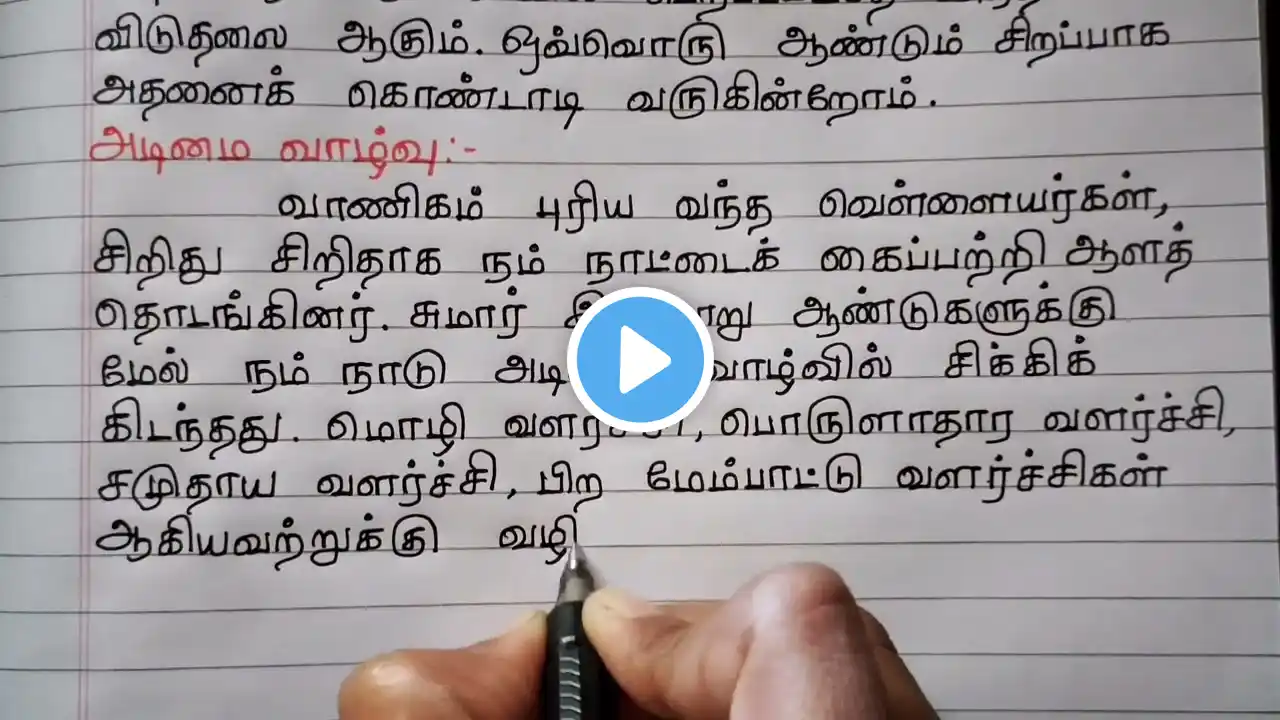 விடுதலை ஆகும். ஒவ்வொரு ஆண்டும் சிறப்பாக
அதனைக் கொண்டாடி வருகின்றோம்.
அடிமை வாழ்வு:-
வாணிகம் புரிய வந்த வெள்ளையர்கள்,
சிறிது சிறிதாக நம் நாட்டைக் கைப்பற்றி ஆளத்
தொடங்கினர். சுமார் ஆண்டுகளுக்கு
மேல் நம் நாடு வாழ்வில் சிக்கிக்
கிடந்தது. மொழி வளர்ச்சி, பொருளாதார வளர்ச்சி,
சமுதாய வளர்ச்சி, பிற மேம்பாட்டு வளர்ச்சிகள்
ஆகியவற்றுக்கு வழி